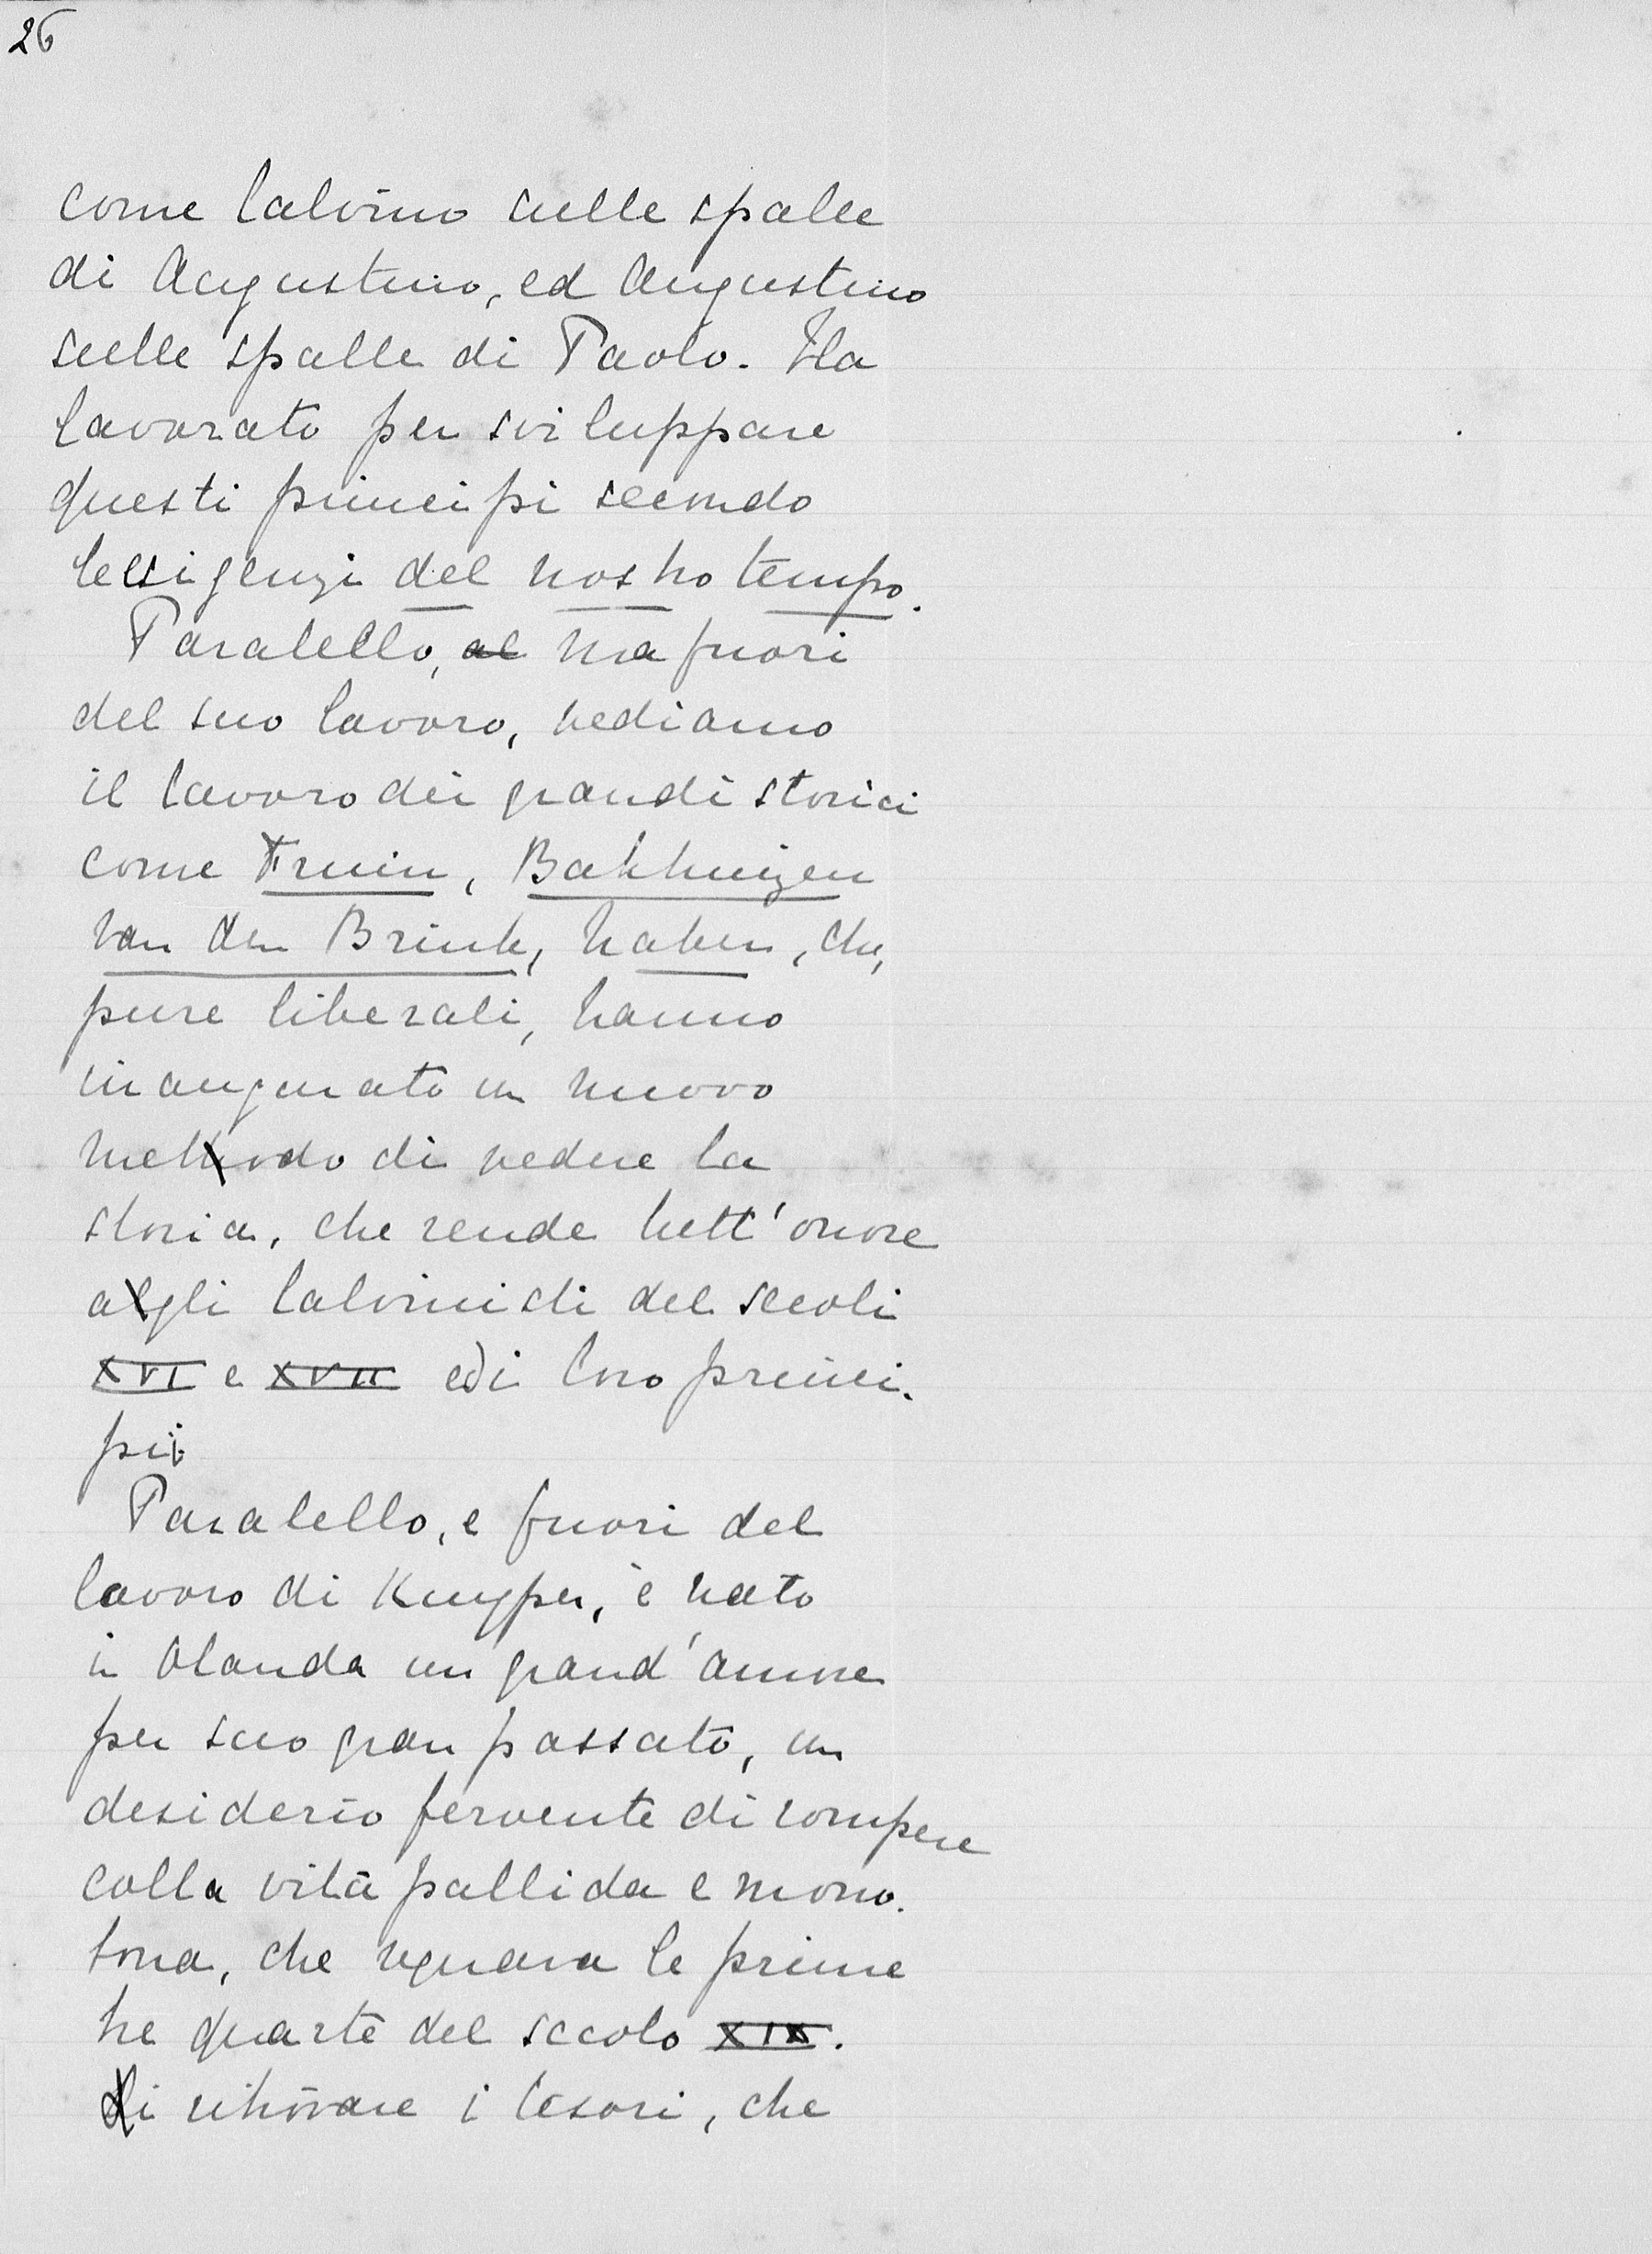 26
come Calvino sulle spalle
di Augustino, ed Augustino
sulle spalle di Paolo. Ha
lavorato per sviluppare
questi principi secondo
le esigenzi del nostro tempo.
Paralello, al ma fuori
del suo lavoro, vediamo
il lavoro dei grandi storici
come Fruin, Bakhuizen
van den Brink, Naber, che,
pure liberali, hanno
inaugurato un nuovo
methodo di vedere la
storia, che rende tutt'onore
algli Calvinisti del secoli
XVI e XVII ed i loro princi-
pii
Paralello, e fuori del
lavoro di Kuyper, è nato
in Olanda un grand'amore
per suo gran passato, un
desiderio fervente di rompere
colla vita pallida e mono-
tona, che regnava le prime
tre quarte del secolo XIX.
Di ritrovare i tesori, che